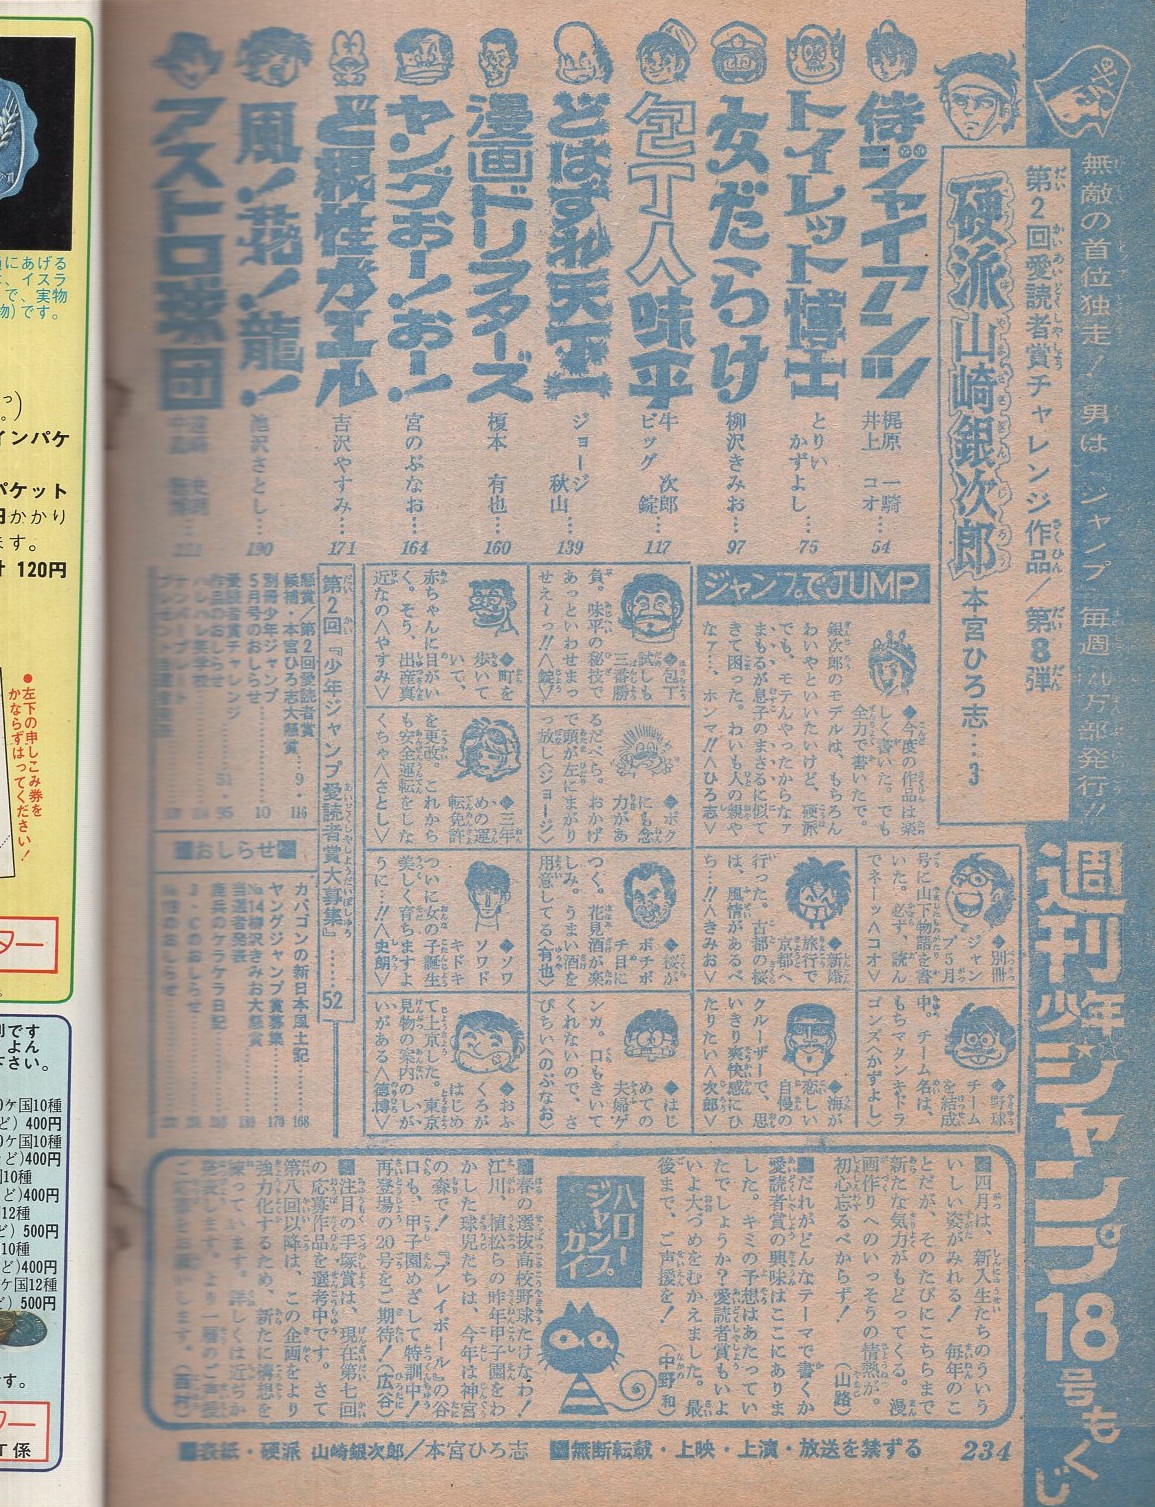 無敵の首位独走! 男はジャンプ 毎週
万部発行!!
週刊少年ジャンプ18号もくじ
第2回愛読者賞チャレンジ作品/第8弾
硬派山崎銀次郎
本宮ひろ志…3
侍ジャイアンツ
梶原一騎
井上コオ…54
トイレット博士
とりいかずよし…75
女だらけ
柳沢きみお…97
包丁人味平
牛次郎
ビッグ錠…117
どはずれ天下一
ジョージ秋山…139
漫画ドリフターズ
榎本有也…160
ヤングおー!おー!
宮のぶなお…164
ど根性ガエル
吉沢やすみ…171
風!花!龍!
池沢さとし…190
アストロ球団
ジャンプでJUMP
◆今度の作品は楽
しく書いた。でも
全力で書いたで。
銀次郎のモデルは、もちろん
わいやといいたいけど、硬派
でも、モテんやったからなァ
まもるが息子のまさるに似て
きて困った。わいも人の親や
なァ…、ホンマ!!〈ひろ志〉
◆包丁
試しも
三番勝
負。味平の秘技で
あっといわせまっ
せえ〜っ!!〈錠〉
◆町を
歩いて
いて、
赤ちゃんに目がい
く。そう、出産真
近なの〈やすみ〉
◆ボク
にも念
力があ
るだべら。おかげ
で頭が左にまがり
っ放し〈ジョージ〉
◆三年
めの運
転免許
を更改。これから
も安全運転をしな
くちゃ〈さとし〉
◆別冊
ジャン
プ5月
号に山下物語を書
いた。必ず、読ん
でネーッ〈コオ〉
◆新婚
旅行で
京都へ
行った。古都の桜
は、風情があるべ
ち…!!〈きみお〉
◆桜が
ボチボ
チ目に
つく。花見酒が楽
しみ。うまい酒を
用意してる〈有也〉
◆ソワ
ソワド
キドキ
ついに女の子誕生
美しく育ちますよ
うに…!!〈史朗〉
◆野球
チーム
を結成
中。チーム名は、
もちマタンキドラ
ゴンズ〈かずよし〉
◆海が
恋しい
自慢の
クルーザーで、思
いきり爽快感にひ
たりたい〈次郎〉
◆はじ
めての
夫婦ゲ
ンカ。口もきいて
くれないので、さ
びちい〈のぶなお〉
◆おふ
くろが
はじめ
て上京した。東京
見物の案内のしが
いがある〈徳博〉
第2回『少年ジャンプ愛読者賞大募集』……52
懸賞/第2回愛読者賞
候補・本宮ひろ志大懸賞…9・116
別冊少年ジャンプ
5月号のおしらせ…10
愛読者賞チャレンジ
作品のおしらせ…51・95
ハレハレ英学校
おしらせ
カバゴンの新日本風土記…168
ヤングジャンプ賞募集…170
No.14柳沢きみお大懸賞
当選者発表
庶兵のケラケラ日記
J・Cのおしらせ
No.19のおしらせ
■四月は、新入生たちのういう
いしい姿がみれる! 毎年のこ
とだが、そのたびにこちらまで
新たな気力がもどってくる。漫
画作りへのいっそうの情熱が。
初心忘るべからず! (山路)
■だれがどんなテーマで書くか
愛読者賞の興味はここにありま
した。キミの予想はあたってい
たでしょうか?愛読者賞もいよ
いよ大づめをむかえました。最
後まで、ご声援を! (中野和)
ハロー
ジャンプ
ガイ
■春の選抜高校野球たけなわ!
江川、植松らの昨年甲子園をわ
かした球児たちは、今年は神宮
の森で!『プレイボール』の谷
口も、甲子園めざして特訓中!
再登場の20号をご期待!(広谷)
■注目の手塚賞は、現在第七回
の応募作品を選考中です。さて
第八回以降は、この企画をより
強力化するため、新たに構想を
練っています。詳しくは近ぢか
発表します。より一層のご声援
■表紙・硬派 山崎銀次郎/本宮ひろ志
■無断転載・上映・上演・放送を禁ずる
234
にあげる
、イスラ
で、実物
物)です。
インパケ
パケット
円かかり
ます。
120円
●左下の申しこみ券を
かならずはってください!
ター
別です
よん
下さい。
ケ国10種
ど) 400円
ケ国10種
ど)400円
国10種
ど)400円
12種
ど) 500円
10種
ど)400円
ケ国12種
ど) 500円
です。
ター
丁係